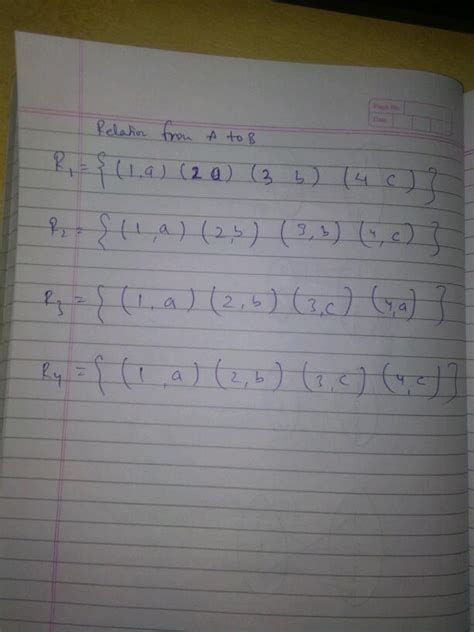 Page No.
Date
Relation from A to B
R₁ = { (1, a) (2 a) (3 b) (4 c) }
R₂ = { (1, a) (2, b) (3, b) (4, c) }
R₃ = { (1, a) (2, b) (3, c) (4, a) }
R₄ = { (1, a) (2, b) (3, c) (4, c) }